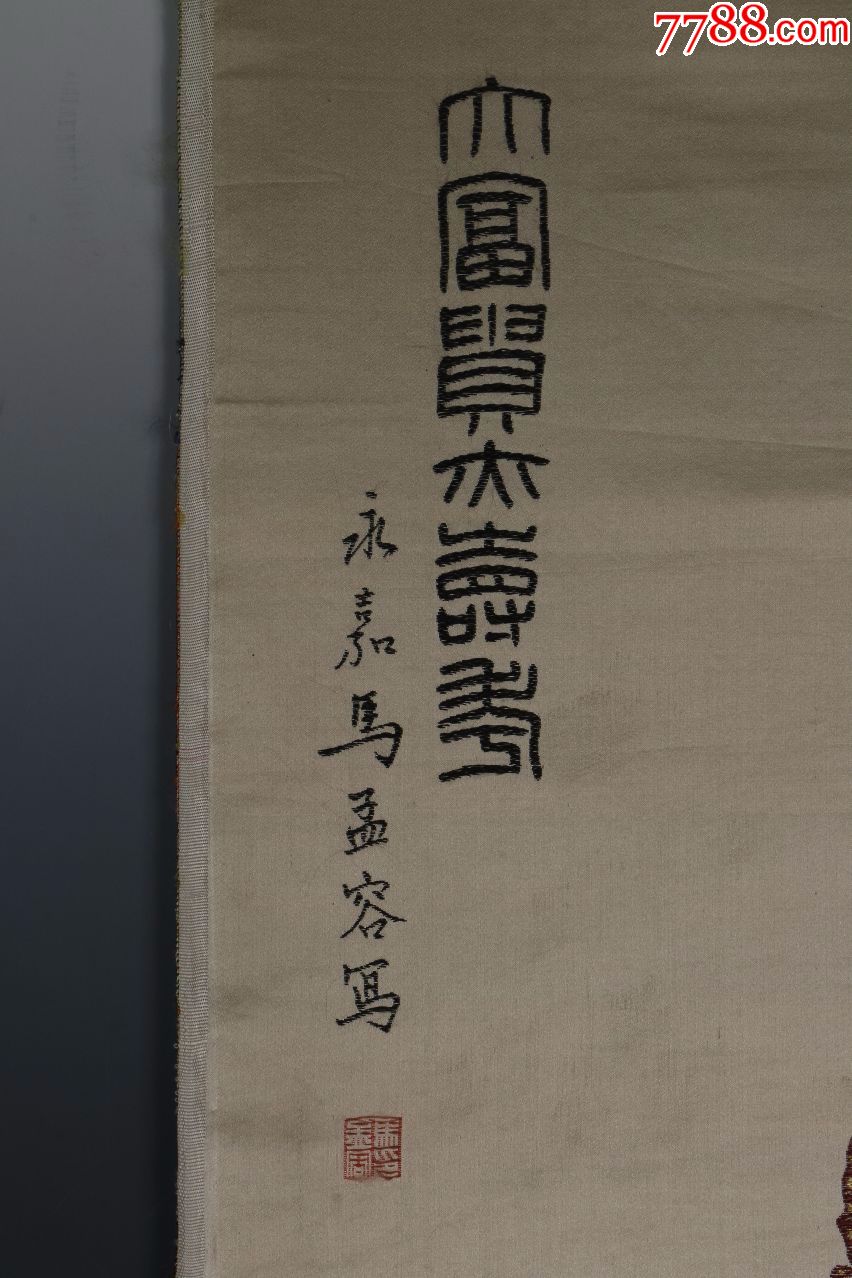 7788.com
大富貴亦壽考
永嘉馬孟容寫